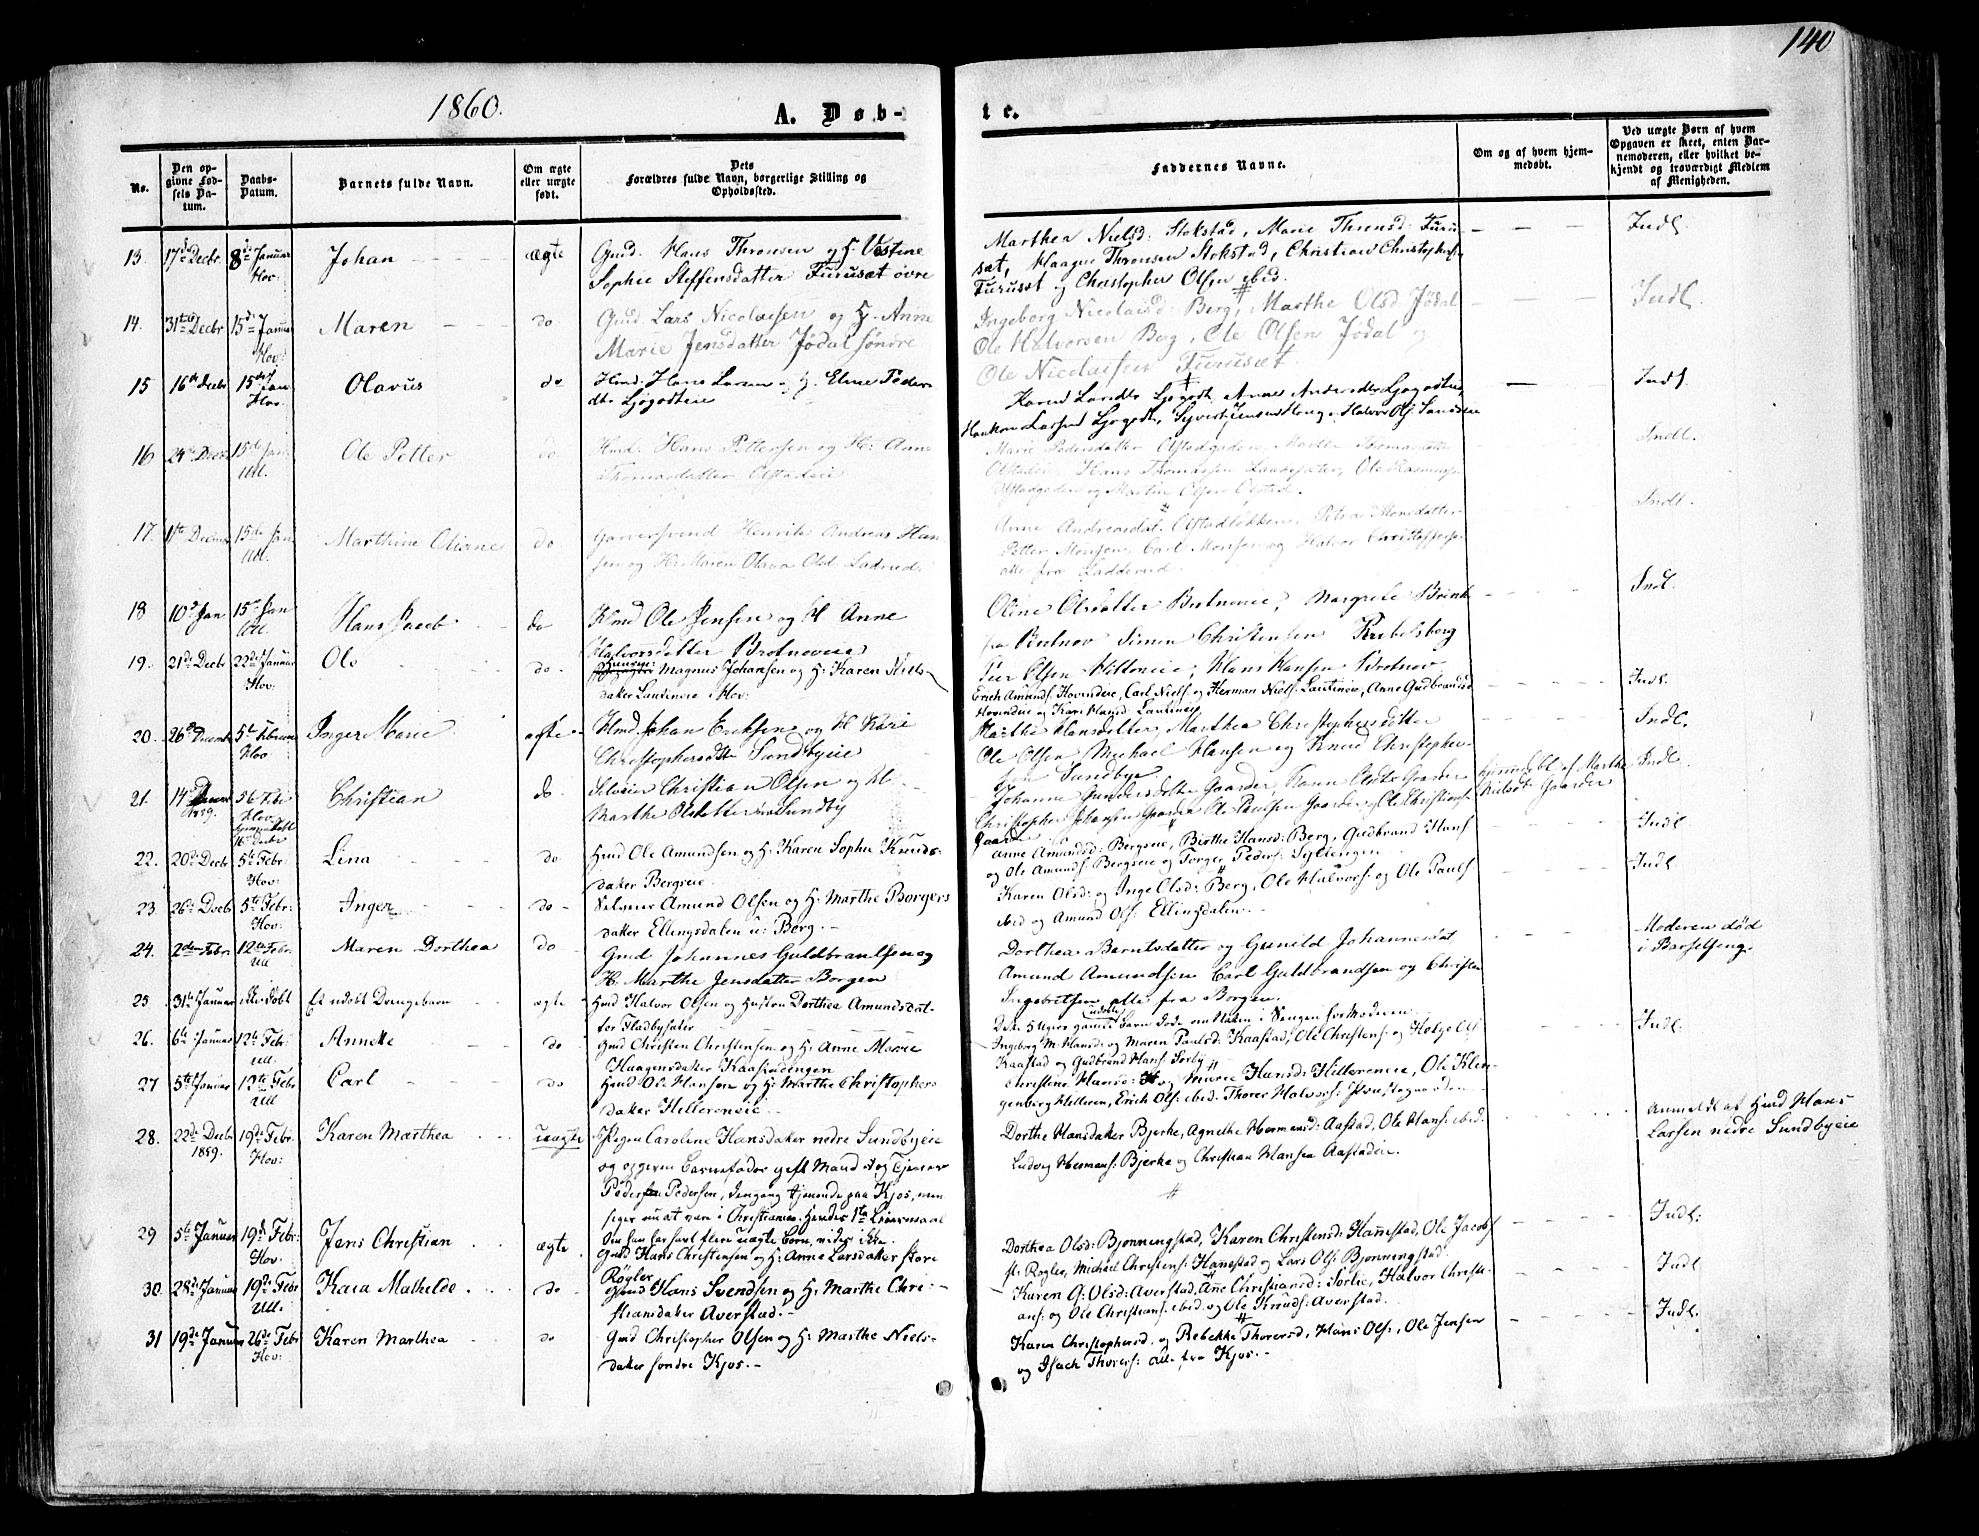 140
1860.
A. Døb-
te.
No.
Den opgivne Fødsels Datum.
Daabs-Datum.
Barnets fulde Navn.
Om ægte eller uægte født.
Dets Forældres fulde Navn, borgerlige Stilling og Opholdssted.
Faddernes Navne.
Om og af hvem hjemmedøbt.
Ved uægte Børn af hvem Opgaven er skeet, enten Barnemoderen, eller hvilket bekjendt og troværdigt Medlem af Menigheden.
13. 17de Decbr. 8de Januar Hov Johan ægte Gmd. Hans Thronsen og H. Vestine
Sophie Steffensdatter Furuset øvre
Marthea Nielsd: Stokstad, Marie Thronsd: Furu
set, Haagen Thronsen Stokstad, Christian Christophers:
Furuset og Christopher Olsen ibid.
Indl.
14. 31te Decbr 15de Januar Hov: Maren do Gmd Lars Nicolaisen og H. Anne
Marie Jensdatter Jødal søndre
Ingeborg Nicolaisd: Berg, Marthe Olsd. Jødal
Ole Halvorsen Berg, Ole Olsen Jødal og
Ole Nicolaisen Furuset.
Indl.
15 16de Decbr 15de Jan Hov. Olavus do Hmd. Hans Larsen og H. Eline Peders
dtr Ljøgodteie
Indl.
16 24de Decbr 15de Jan Ull. Ole Petter do Hmd. Hans Pettersen og H: Anne
Thomasdatter Olstadeie
Marie Pedersdatter Olstadgaden, Marthe Thomasdatter
Olstadeie, Hans Thomassen
Olstadgaden og Martin Olsen Olstad.
Indl.
17. 15de Jan Ull. Marthine Oliane do Garversvend Henrik Andreas Han
sen og H: Maren Olava Olsd. Ladrud.
Anne Andreasdat. Olstadløkken, Petra Monsdatter
Petter Monsen, Carl Monsen og Halvor Christoffersen
alle fra Ladderud.
Indl.
18 10de Jan 15de Jan Ull. Hans Jacob do Hmd Ole Jensen og H Anne
Halvorsdatter Brotnoveie
Oline Olsdatter
Simen Christensen
Peer Olsen Hans Hansen Brotnov
Indl.
19. 21de Decbr 22de Januar Hov: Ole do. Magnus Johansen og H: Karen Niels-
datter Lautineie i Hov:
Erich Amunds: Hovindeie, Carl Niels: og Herman Niels: Lautineie, Anne Gudbrandsd
Hovindeie og Kari Hansd: Lautineie
Indl.
20. 26de December 5te Februar Hov Inger Marie ægte Hmd. Johan Eriksen og H Kari
Christophersdtr Sundbyeie
Marthe Hansdatter, Marthea Christophersdatter
Ole Olsen, Michael Hansen og Knud Christopher-
sen Sundbye
Indl.
21. 14de 1859. 5te Febr Hov. Christian do. Selveier Christian Olsen og H.
Marthe Olsdatter Sundby
Johanne Gundersdatter Gaarder, Karen Olsdtr Gaarder
Christopher Johansen Gaarder Ole Paulsen Gaarder og Ole Christians:
Gaarder
hjemmedøbt af Marthe
Nielsdt Gaarder
Indl.
22. 20de Decbr 5te Febr: Hov: Lina do Hmd Ole Amundsen og H: Karen Sophie Knuds-
datter Bergseie
Anne Amundsd: Bergseie, Birthe Hansd: Berg, Gudbrand Hans:
og Ole Amunds: Bergseie og Torger Peders: Syltengen
Indl
23. 26de Decbr 5te Febr: Hov: Inger do Selveier Amund Olsen og H: Marthe Borgers
datter Ellingsdalen u: Berg.
Karen Olsd: og Inge Olsd: Berg, Ole Halvors: og Ole Pauls:
ibid og Amund Ols: Ellingsdalen.
Indl.
24. 2den Febr: 12te Febr. Ull Maren Dorthea do Gmd Johannes Guldbrandsen og
H. Marthe Jensdatter Borgen
Dorthea Berntsdatter og Gunild Johannesdat.
Amund Amundsen Carl Guldbrandsen og Christen
Ingebretsen alle fra Borgen.
Moderen død
i Barselseng.
25 31te Januar ikke døbt Et udøbt Drengebarn ægte Hmd Halvor Olsen og Hustru Dorthea Amundsdat-
ter Fladbysæter
Dette 5 Uger gamle (udøbte) Barn døde om Natten i Sengen hos Moderen.
26. 6te Januar 12te Febr: Ull. Annette do Gmd Christen Christensen og H: Anne Marie
Haagensdatter Kaastadengen
Ingeborg M: Hansd: og Maren Paulsd: Kaastad, Ole Christens: og Helge Ols:
Kaastad og Gudbrand Hans: Sorby
Indl:
27 5te Januar 12te Febr Ull Carl do Hmd Ole Hansen og H: Marthe Christophers
datter Hellereneie
Christine Hansd: og Marie Hansd: Hellereneie, Ole Klem
genberg Helleren, Erich Ols: ibid. Thorer Halvors:
28. 22de Decbr 1859. 19de Febr. Hov: Karen Marthea uægte Pigen Caroline Hansdatter nedre Sundbyeie
og opgiven Barnefader gift Mand og Tjener
Peder Pedersen, dengang tjenende paa Kjos, men
siger nu at være i Christiania. Hendes 1te Leiermaal
Om han har havt flere uægte Børn, vides ikke.
Dorthe Hansdatter Bjerke, Agnethe Hermansd: Aastad, Ole Hans: ibid.
Ludvig Hermans: Bjerke og Christian Hansen Aastadeie.
Anmeldt af Hmd Hans
Larsen nedre Sundbyeie
29 5te Januar 19de Febr: Hov: Jens Christian ægte Gmd Hans Christensen og H: Anne Larsdatter store
Røgler
Dorthea Olsd: Bjønningstad, Karen Christensd: Hannestad, Ole Jacobs:
st: Røgler, Michael Christens: Hannestad og Lars Ols: Bjønningstad
Indl:
30 28de Januar 19de Febr: Ull. Kaia Mathilde do Gmd Hans Svendsen og H: Marthe Chri-
stiansdatter Averstad.
Karen G: Olsd: Averstad, Ane Christiansd: Sørlie, Halvor Christi-
ans: og Ole Christians: ibid. og Ole Knuds: Averstad.
Indl
31 19de Januar 26de Febr Hov: Karen Marthea do Gmd Christopher Olsen og H: Marthe Niels-
datter søndre Kjos.
Karen Christophersd. og Rebekke Thorersd, Hans Ols:, Ole Jensen
og Isach Thorers: alle fra Kjos.
Indl.